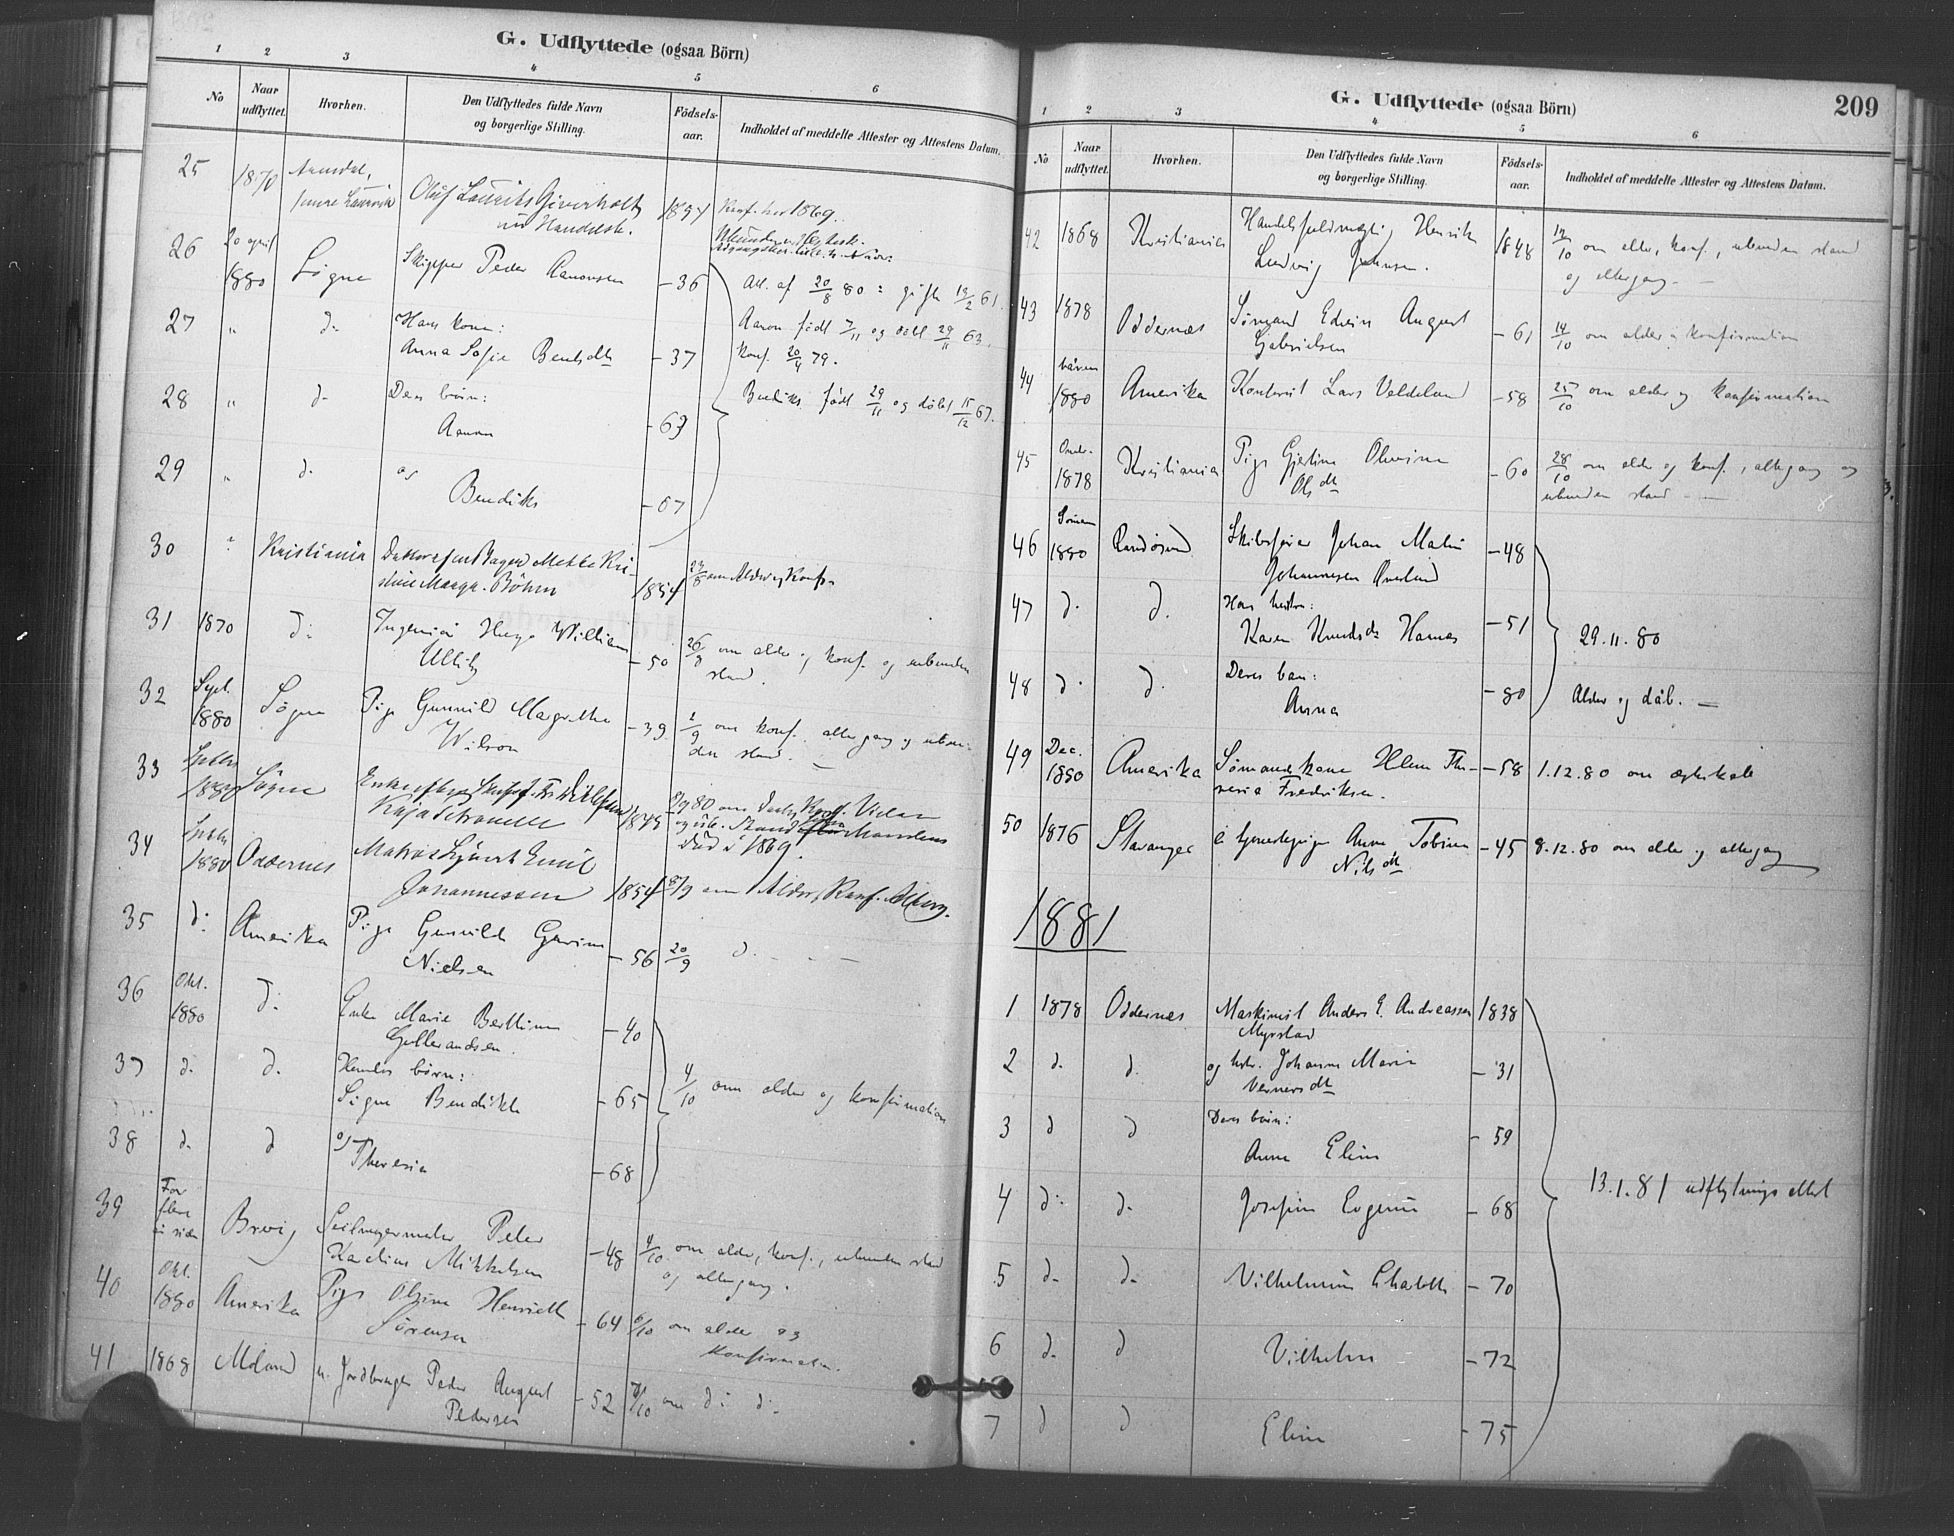 G. Udflyttede (ogsaa Börn)
1 2 3 4 5 6
No
Naar udflyttet.
Hvorhen.
Den Udflyttedes fulde Navn og borgerlige Stilling.
Födsels-aar.
Indholdet af meddelte Attester og Attestens Datum.
25 1870 Arendal, Oluf Laurits 1854 Konf. her 1869.
26 20 april 1880 Søgne Skipper Peder Aanonsen - 36 Att. af 20/8 80 : gift 19/2 61.
27 " d. Hans kone: Aanon født 7/11 og døbt 29/11 63.
Anna Sofie Bentsdtr - 37 Konf. 20/4 79.
28 " d. Deres børn: Bendiks født 29/11 og døbt 15/12 67.
Aanon - 63
29 " d. og
Bendiks - 67
30 " Kristiania Mette Kri-
stine Marga. Böhm 1854 om Alder og Konf.
31 1870 d: Ingeniør Hugo William
- 50 26/8 om alder og konf. og ubunden
stand.
32 Sept. 1880 Søgne Pige Gunvild Margrethe
Wilson - 39 2/9 om konf. altergang og ubun-
den stand. —
33 Septbr 1880 Søgne
Kaja Petronelle 1845 8/9 80 om
Død i 1869.
34 Septbr 1880 Oddernes Matros Emil
Johannessen 1854 8/9 om Alder, Konf. Alterg.
35 d: Amerika Pige Gunvild
Nielsen - 56 20/9 d. — —
36 Okt. 1880 d: Enke Marie Berthine
- 40
37 d. d. Hendes børn:
Signe Bendikte - 65 4/10 om alder og konfirmation
38 d. d og
Theresia - 68
39 For flere år siden Brevig Seilmagermester Peter
Karelius Mikkelsen - 48 4/10 om alder, konf., ubunden stand
og altergang.
40 Okt. 1880 Amerika Pige Olgine Henriette
Sørensen - 64 6/10 om alder og
konfirmation.
41 1868 Moland u. Jordbruger Peder August
Pedersen - 52 om d: d:
G. Udflyttede (ogsaa Börn) 209
1 2 3 4 5 6
No
Naar udflyttet.
Hvorhen.
Den Udflyttedes fulde Navn og borgerlige Stilling.
Födsels-aar.
Indholdet af meddelte Attester og Attestens Datum.
42 1868 Kristiania Handelsfuldmægtig Henrik
Ludvig Johnsen. 1848 om alder, konf., ubunden stand
og altergang. —
43 1878 Oddernæs Sømand Edvin August
Gabrielsen - 61 14/10 om alder og konfirmation
44 våren 1880 Amerika Kontorist Lars Veldeland - 58 25/10 om alder og konfirmation
45 1878 Kristiania Pige Gjertine Olivine
Olsdtr - 60 28/10 om alder og konf., altergang og
ubunden stand —
46 1880 Randøsund Skibsfører Johan Mathi
Johannesen Øverland - 48
47 d. d. Hans hustru:
Karen Knudsdtr Hamre - 51 29.11.80
48 d. d. Deres barn:
Anna - 80 Alder og dåb. —
49 Dec. 1880 Amerika Sømandskone Helene The-
resia Fredriksen. - 58 1.12.80 om ægteskab
50 1876 Stavanger Tjenestepige Anne Tobine
Nilsdtr - 45 8.12.80 om alder og altergang
1881
1 1878 Oddernæs Maskinist Anders E. Andreassen
Myrstad 1838
2 d. d. og hstr. Johanne Marie
Vernersdtr - 31
3 d d Deres børn:
Anna Elise - 59
4 d: d. Josefine Eugenie - 68 13.1.81 udflytningsattest
5 d. d. Vilhelmine Elisabeth - 70
6 d. d Vilhelm - 72
7 d d Elise - 75